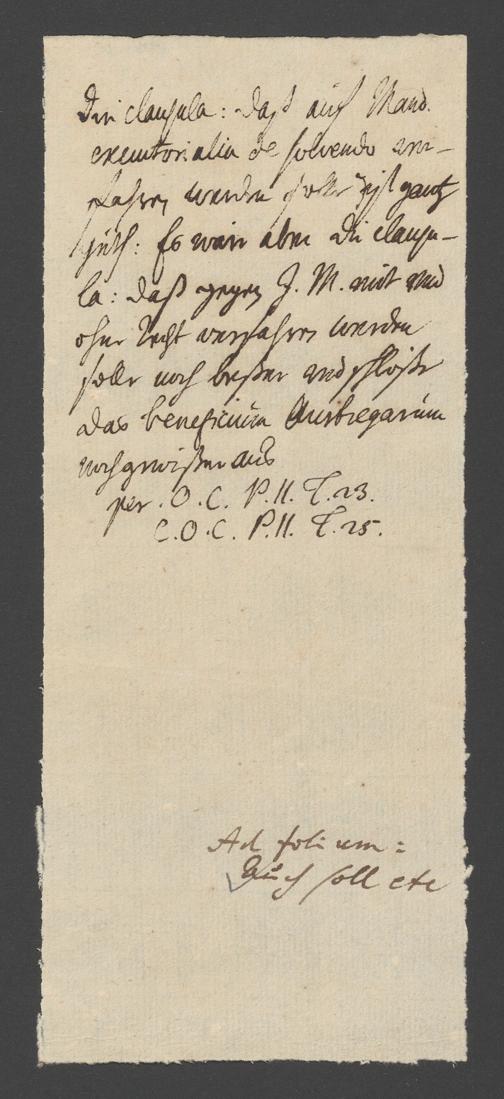 Die clausula: daß auf Mand.
executorialia de solvendo ver-
fahren werden solle ist gantz
gut: Es wäre aber die clausu-
la: daß gegen J. M. mit und
ohne Recht verfahren werden
solle noch beßer und schlöße
das beneficium Austregarum
noch gewißer aus
per. O. C. P. II. T. 23.
C. O. C. P. II. T. 25.
Ad folium:
Auch soll etc